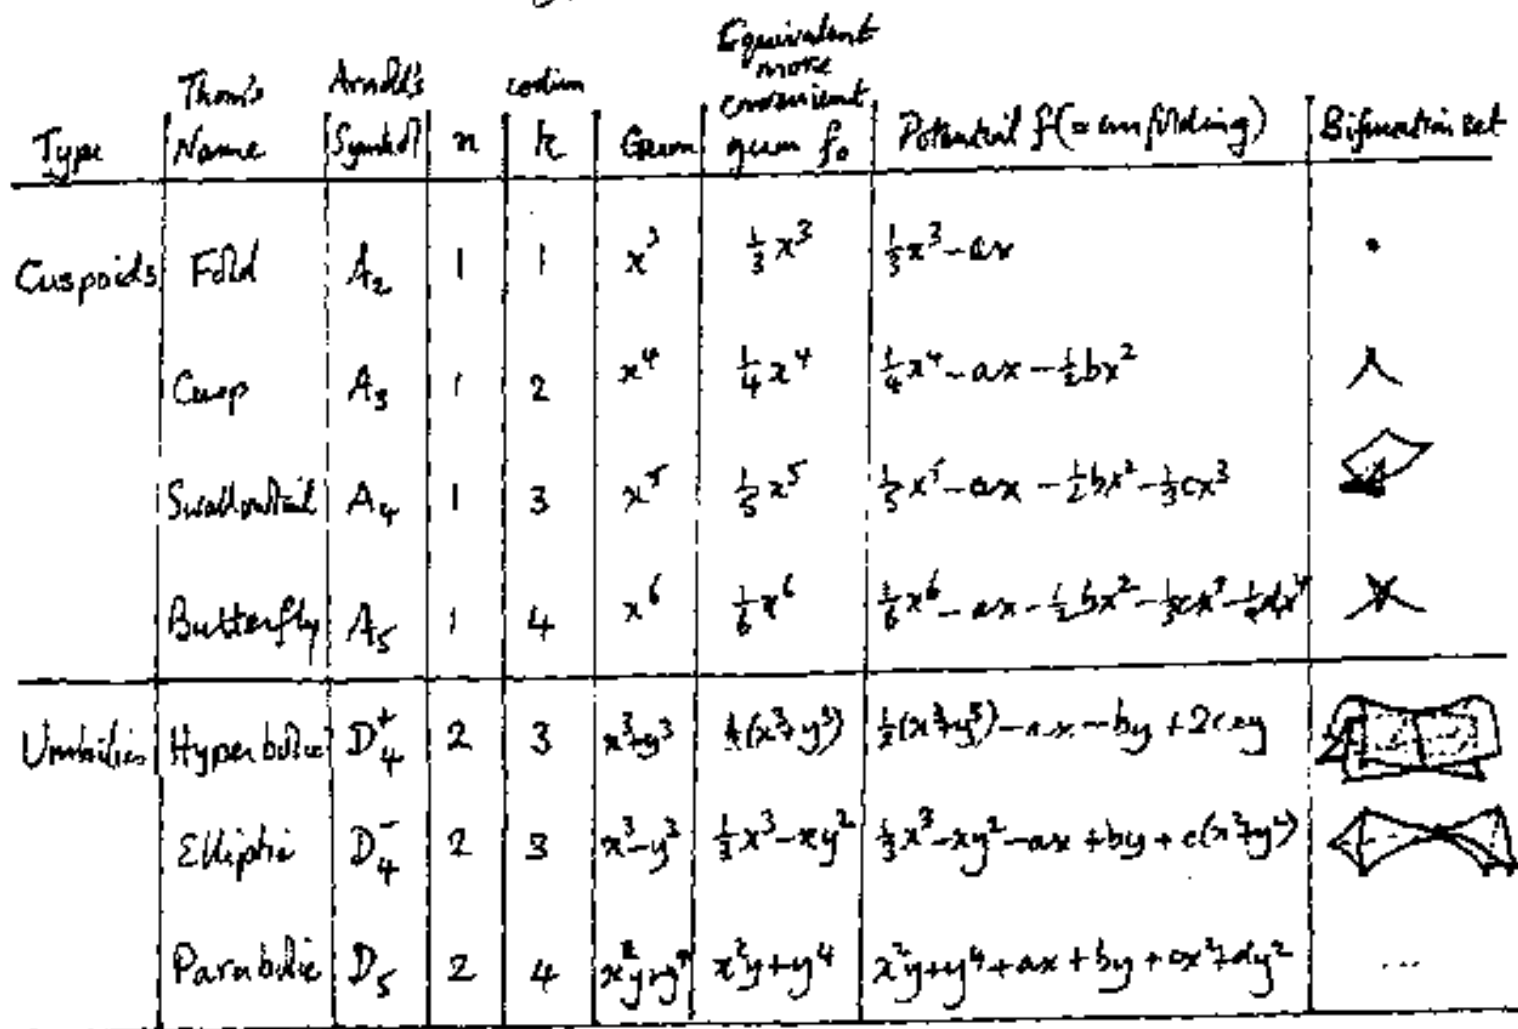 Equivalent
more
Thom's Arnold's codim convenient
Type Name Symbol n k Germ germ f₀ Potential f (= unfolding) Bifurcation set
Cuspoids Fold A₂ 1 1 x³ ⅓x³ ⅓x³ - ax
Cusp A₃ 1 2 x⁴ ¼x⁴ ¼x⁴ - ax - ½bx²
Swallowtail A₄ 1 3 x⁵ ⅕x⁵ ⅕x⁵ - ax - ½bx² - ⅓cx³
Butterfly A₅ 1 4 x⁶ ⅙x⁶ ⅙x⁶ - ax - ½bx² - ⅓cx³ - ¼dx⁴
Umbilics Hyperbolic D₄⁺ 2 3 x³+y³ (x³+y³) (x³+y³) - ax - by + 2cxy
Elliptic D₄⁻ 2 3 ⅓x³ - xy² ⅓x³ - xy² - ax + by + c(x²+y²)
Parabolic D₅ 2 4 x²y+y⁴ x²y+y⁴ x²y+y⁴+ax+by+cx²+dy² ...